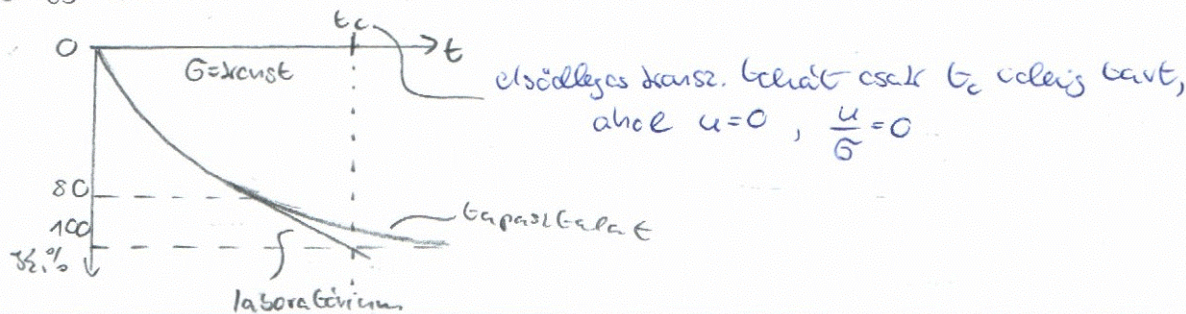 tc
0
t
σ=konst
elsődleges konsz. tehát csak tc ideig tart,
ahol u=0 , u/σ=0
80
100
tapasztalat
κ,%
laboratórium